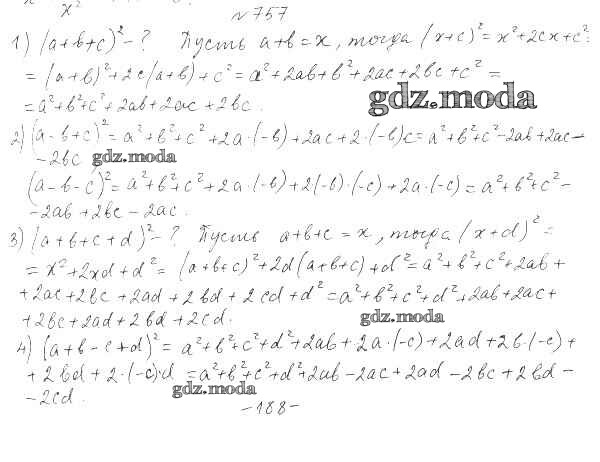 x²
№ 757
1) (a+b+c)² - ? Пусть a+b=x, тогда (x+c)² = x²+2cx+c² =
= (a+b)²+2c(a+b)+c² = a²+2ab+b²+2ac+2bc+c² =
= a²+b²+c²+2ab+2ac+2bc.
gdz.moda
2) (a-b+c)² = a²+b²+c²+2a·(-b)+2ac+2·(-b)c = a²+b²+c²-2ab+2ac-
-2bc gdz.moda
(a-b-c)² = a²+b²+c²+2a·(-b)+2(-b)·(-c)+2a·(-c) = a²+b²+c²-
-2ab+2bc-2ac.
3) (a+b+c+d)² - ? Пусть a+b+c = x, тогда (x+d)² =
= x²+2xd+d² = (a+b+c)²+2d(a+b+c)+d² = a²+b²+c²+2ab+
+2ac+2bc+2ad+2bd+2cd+d² = a²+b²+c²+d²+2ab+2ac+
+2bc+2ad+2bd+2cd. gdz.moda
4) (a+b-c+d)² = a²+b²+c²+d²+2ab+2a·(-c)+2ad+2b·(-c)+
+2bd+2·(-c)·d = a²+b²+c²+d²+2ab-2ac+2ad-2bc+2bd-
-2cd. gdz.moda
-188-